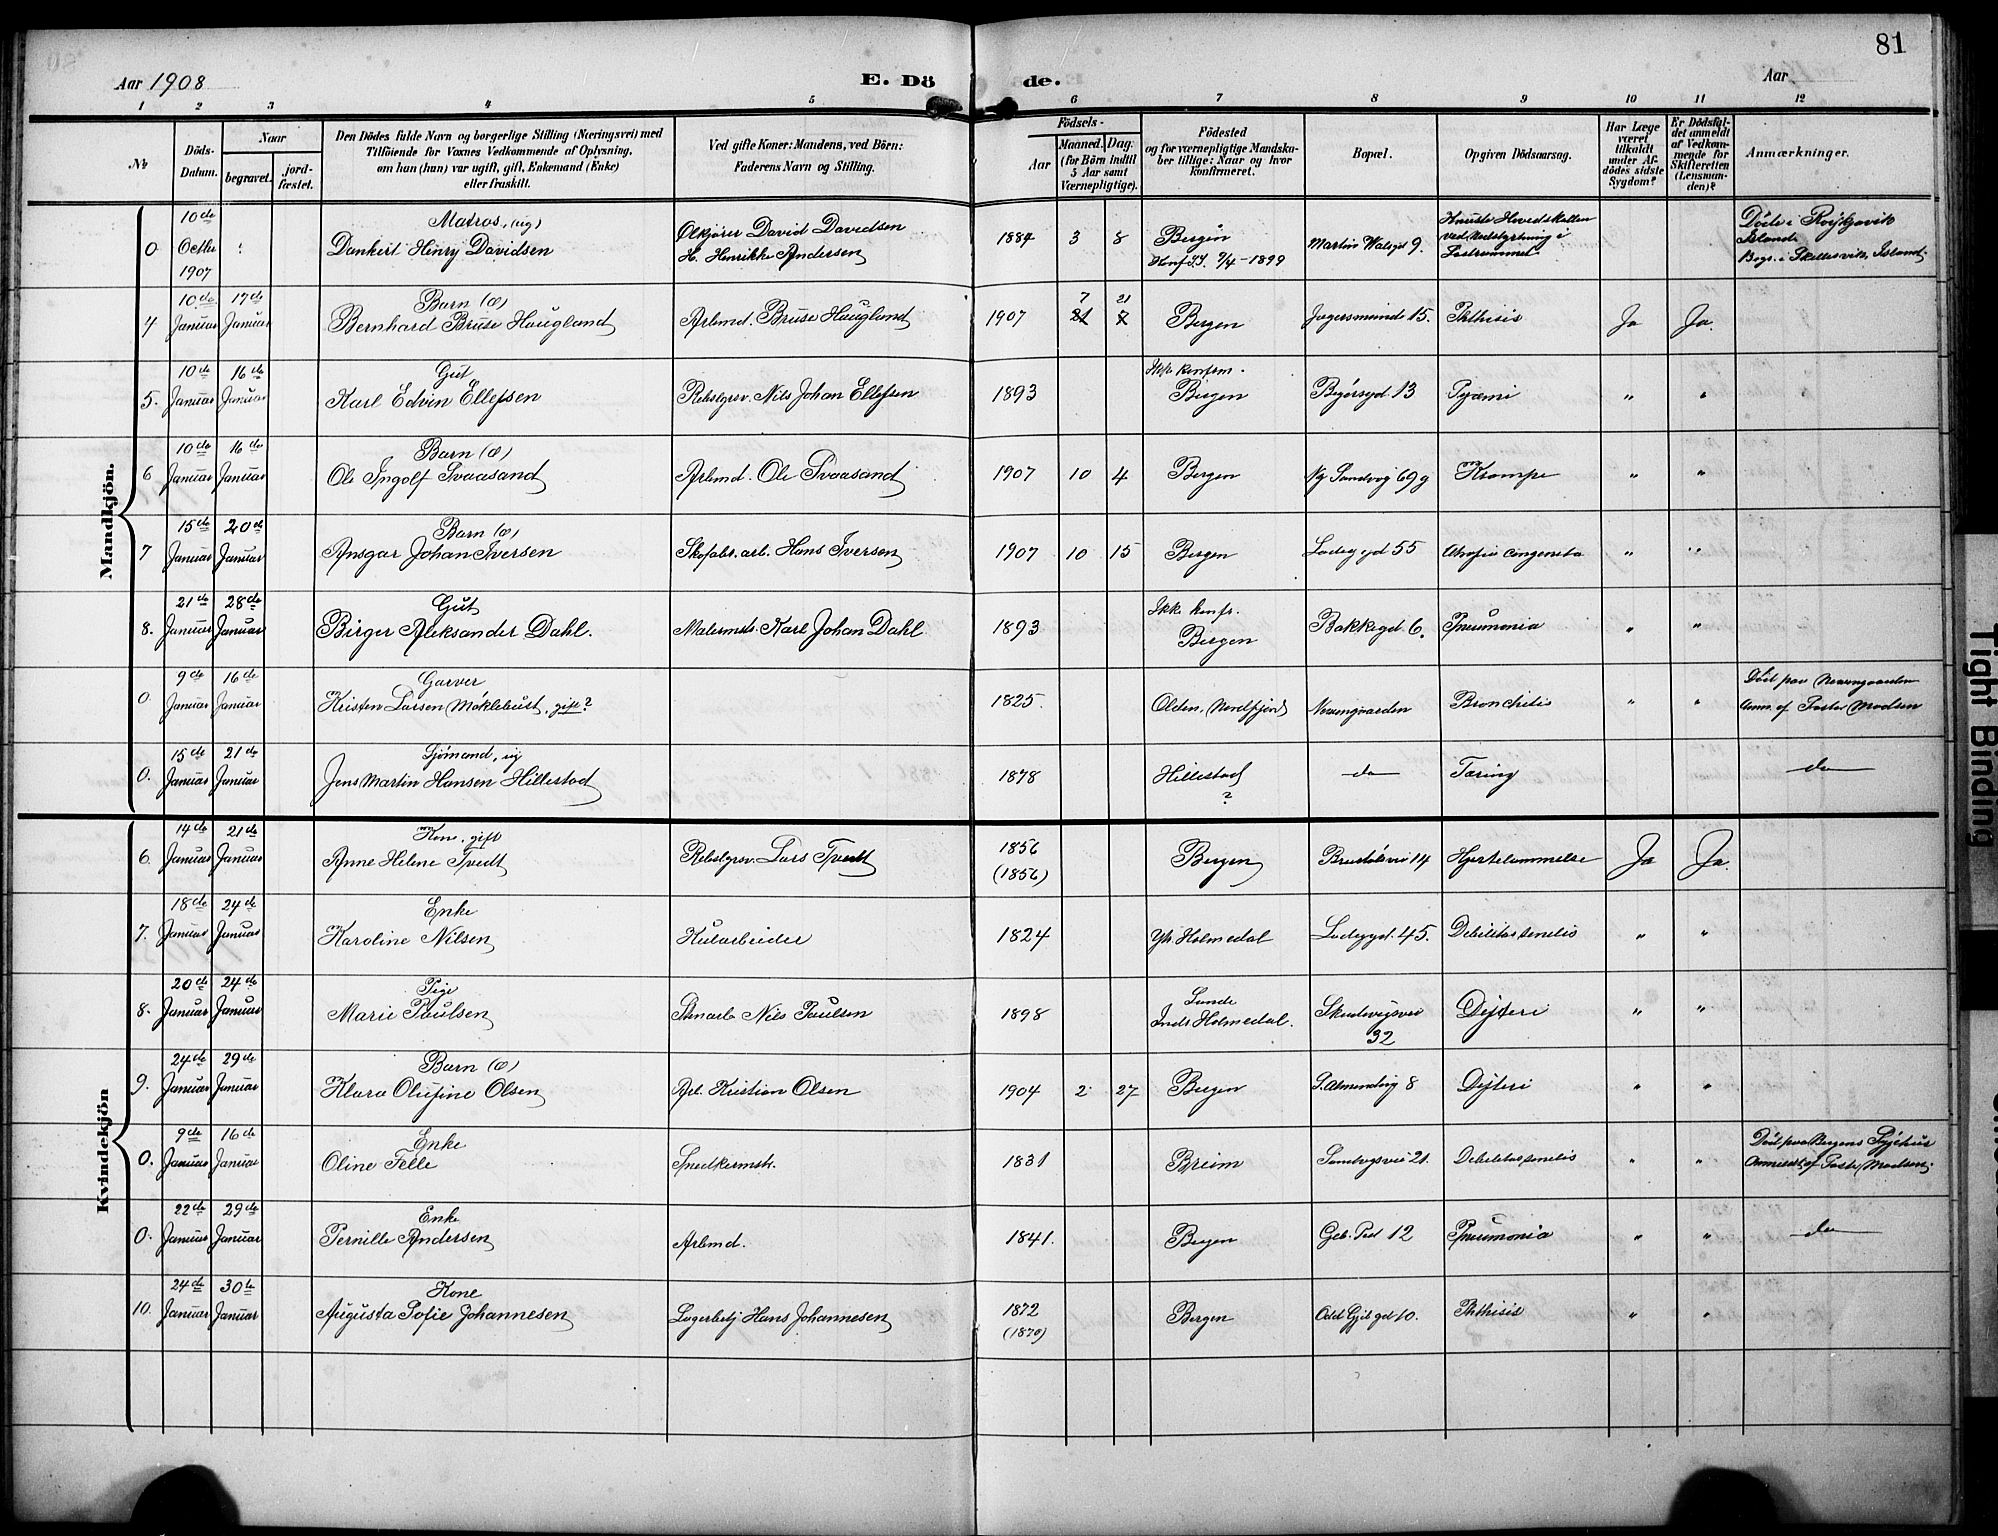 81
Aar 1908
E. Dö de.
Aar
1 2 3 4 5 6 7 8 9 10 11 12
No
Döds-Datum.
Naar
begravet.
jord-fæstet.
Den Dödes fulde Navn og borgerlige Stilling (Næringsvei) med
Tilföiende for Voxnes Vedkommende af Oplysning,
om han (hun) var ugift, gift, Enkemand (Enke)
eller fraskilt.
Ved gifte Koner: Mandens, ved Börn:
Faderens Navn og Stilling.
Födsels-
Aar
Maaned. Dag.
(for Börn indtil
5 Aar samt
Værnepligtige).
Födested
og for værnepligtige Mandska-
ber tillige: Naar og hvor
konfirmeret.
Bopæl.
Opgiven Dödsaarsag.
Har Læge
været
tilkaldt
under Af-
dödes sidste
Sygdom?
Er Dödsfal-
det anmeldt
af Vedkom-
mende for
Skifteretten
(Lensman-
den)?
Anmærkninger.
Mandkjön.
0 10de Octbr 1907 Matros, (ug) Dankert Henry Davidsen Ølkjører David Davidsen H. Henrikke Andersen 1884 3 8 Bergen Konf. 9/4-1899 9. Knuste Hovedskallen ved Nedstyrtning i Lastrummet Døde i Reykjavik Island
4 10de Januar 17de Januar Barn (æ) Bernhard Bruse Haugland Arbmd. Bruse Haugland 1907 7 21 Bergen 15. Phthisis Ja Ja.
5. 10de Januar 16de Januar Gut Karl Edvin Ellefsen Rebslgrsv. Nils Johan Ellefsen 1893 Ikke konfirm. Bergen 13 Pyæmi " "
6 10de Januar 16de Januar Barn (æ) Ole Ingolf Svaasand Arbmd. Ole Svaasand 1907 10 4 Bergen Ny Sandvig 69g Krampe " "
7 15de Januar 20de Januar Barn (æ) Ansgar Johan Iversen Skofabr. arb. Hans Iversen 1907 10 15 Bergen Ladeggd 55 Atrofia congenita " "
8. 21de Januar 28de Januar Gut Birger Aleksander Dahl. Malermstr. Karl Johan Dahl 1893 Ikke konfr. Bergen Bakkegd. 6. Pneumonia " "
0. 9de Januar 16de Januar Garver Kristen Larsen Møklebust, gift? 1825. Olden, Nordfjord Nevengaarden Bronchitis " " Død paa Nevengaarden Anm. af Madsen
0. 15de Januar 21de Januar Sjømand, ug Jens Martin Hansen Hillestad 1878 Hillestad ? do Tæring do
Kvindekjön
6. 14de Januar 21de Januar Kone, gift Anne Helene Tvedt Rebslgrsv. Lars Tvedt 1856 (1856) Bergen 14 Hjertelammelse Ja Ja.
7. 18de Januar 24de Januar Enke Karoline Nilsen Kularbeider 1824 Yt. Holmedal Ladeggd. 45. Debilitas senilis " "
8. 20de Januar 24de Januar Pige Marie Paulsen Stenarb Nils Paulsen 1898 Sande Inds Holmedal. Skudevigsvei 32 Dyfteri " "
9. 24de Januar 29de Januar Barn (æ) Klara Olufine Olsen Arb. Kristian Olsen 1904 2 27 Bergen S. Almending 8 Dyfteri " "
0. 9de Januar 16de Januar Enke Oline Felle Snedkermstr. 1831 Breim Sandvigsvei 21. Debilitas senilis " " Død paa Bergens Sygehus Anmeldt af Madsen
0. 22de Januar 29de Januar Enke Pernille Andersen Arbmd. 1841. Bergen 12 Pneumonia " " do
10. 24de Januar 30te Januar Kone Augusta Sofie Johannesen Lagerbetj Hans Johannesen 1872 (1870) Bergen 10. Phthisis " "
Tight Binding